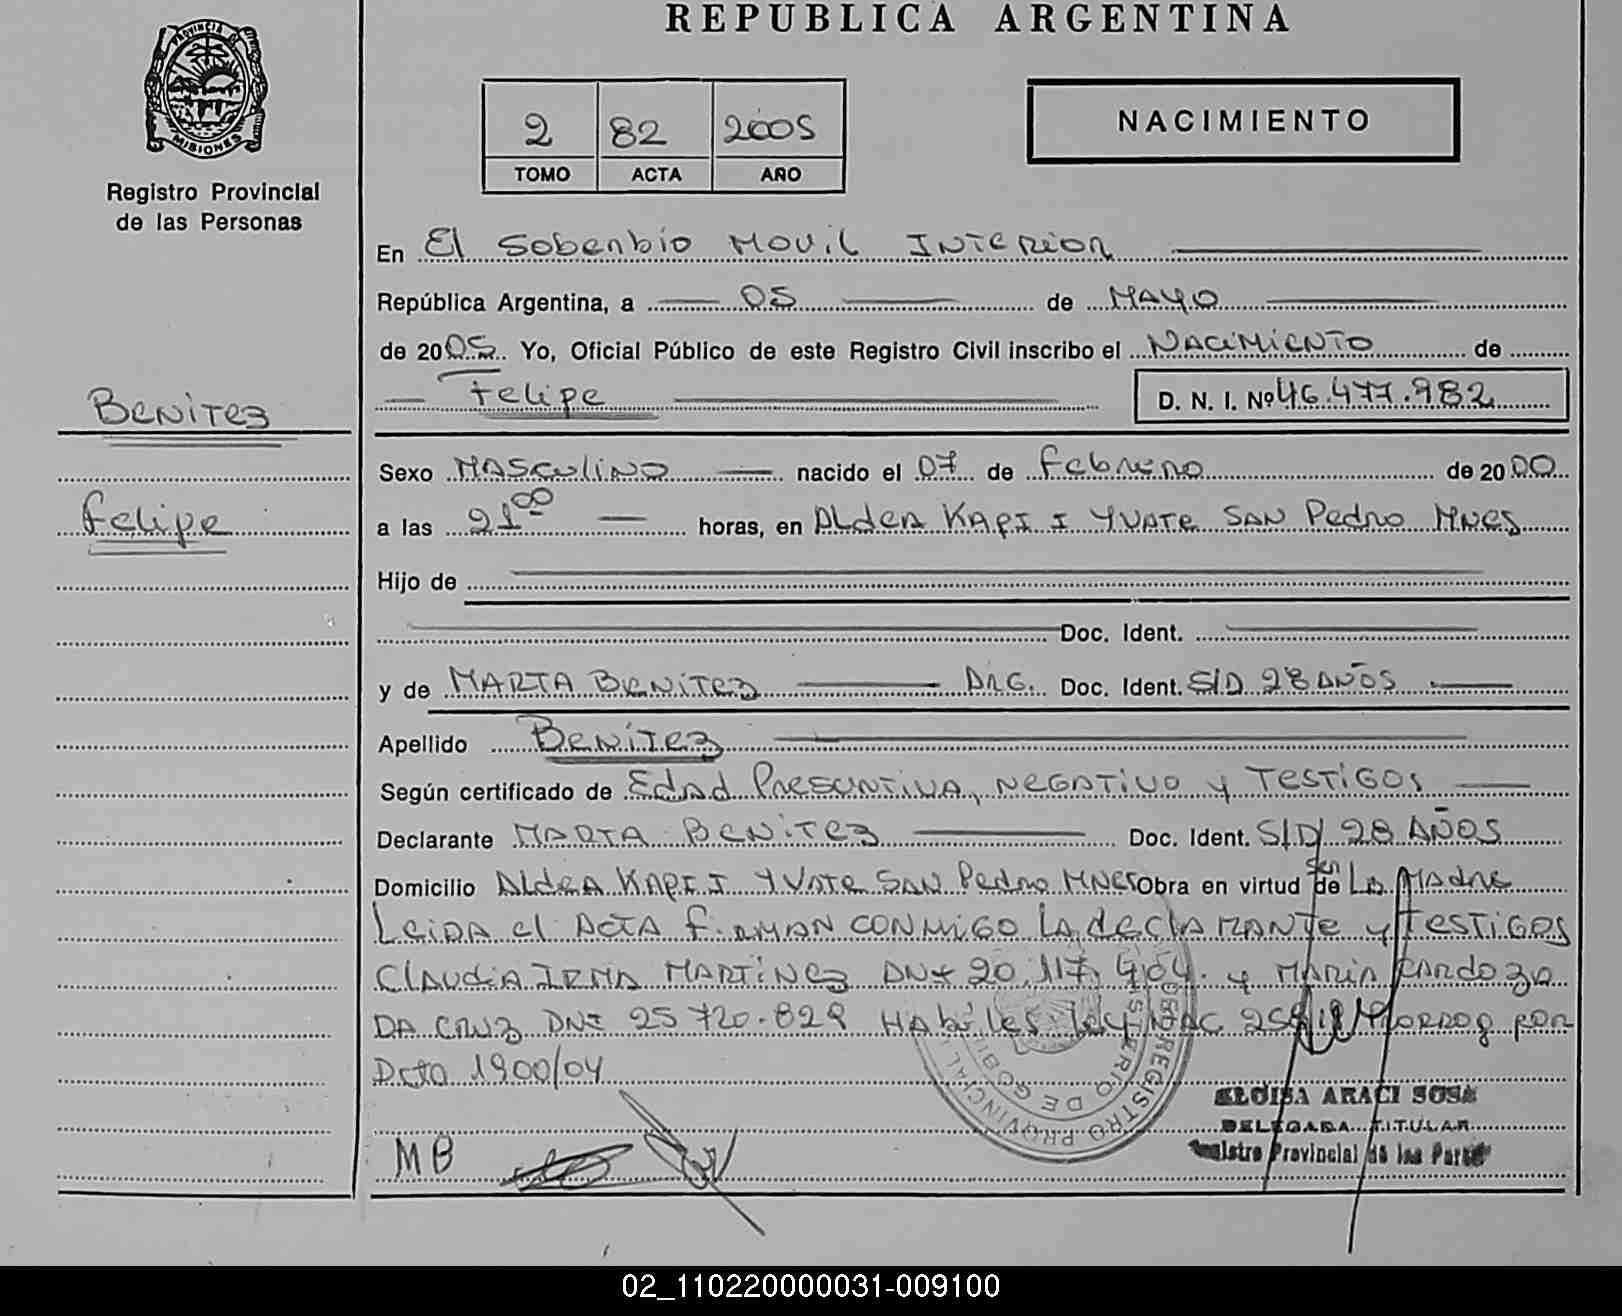 REPUBLICA ARGENTINA
PROVINCIA DE
MISIONES
Registro Provincial
de las Personas
2 82 2005
TOMO ACTA AÑO
NACIMIENTO
En El Soberbio Movil Interior
República Argentina, a 05 de Mayo
de 2005 Yo, Oficial Público de este Registro Civil inscribo el Nacimiento de
Felipe D. N. I. Nº 46.477.982
Benitez
Sexo Masculino nacido el 07 de Febrero de 2000
Felipe
a las 21 00 horas, en Aldea Kapi I Yvate San Pedro Mnes
Hijo de
Doc. Ident.
y de Marta Benitez Arg. Doc. Ident. S/D 28 años
Apellido Benitez
Según certificado de Edad Presuntiva, negativo y Testigos
Declarante Marta Benitez Doc. Ident. S/D/ 28 Años
Domicilio Aldea Kapi I Yvate San Pedro Mnes Obra en virtud de ser La Madre
Leida el Acta firman conmigo la declarante y testigos
Claudia Irma Martinez DNI 20.117.404. y Maria Cardozo
Da Cruz DNI 25 720.829 Habiles Ley Nac 25 Prorrog por
Dcto 1900/04
REGISTRO PROVINCIAL
ELOISA ARACI SOSA
DELEGADA TITULAR
Registro Provincial de las Pers
MB
02_110220000031-009100